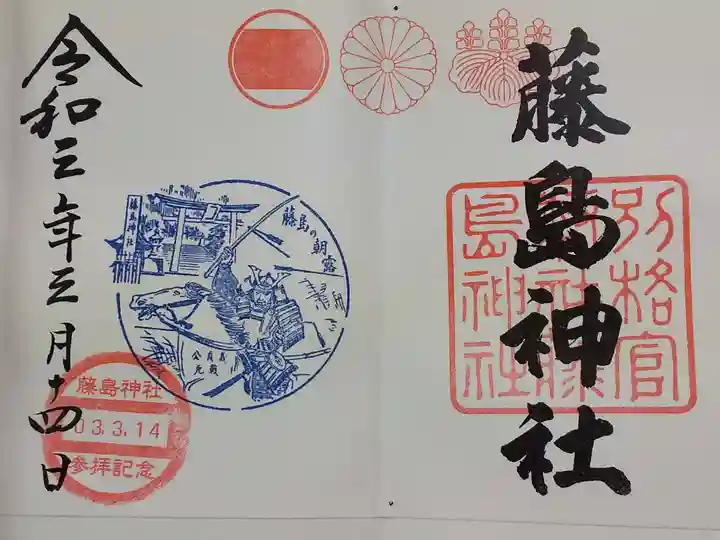 藤島神社
別格官
幣社藤
島神社
藤島神社
藤島の朝露
令和三年三月十四日
藤島神社
03.3.14
参拝記念